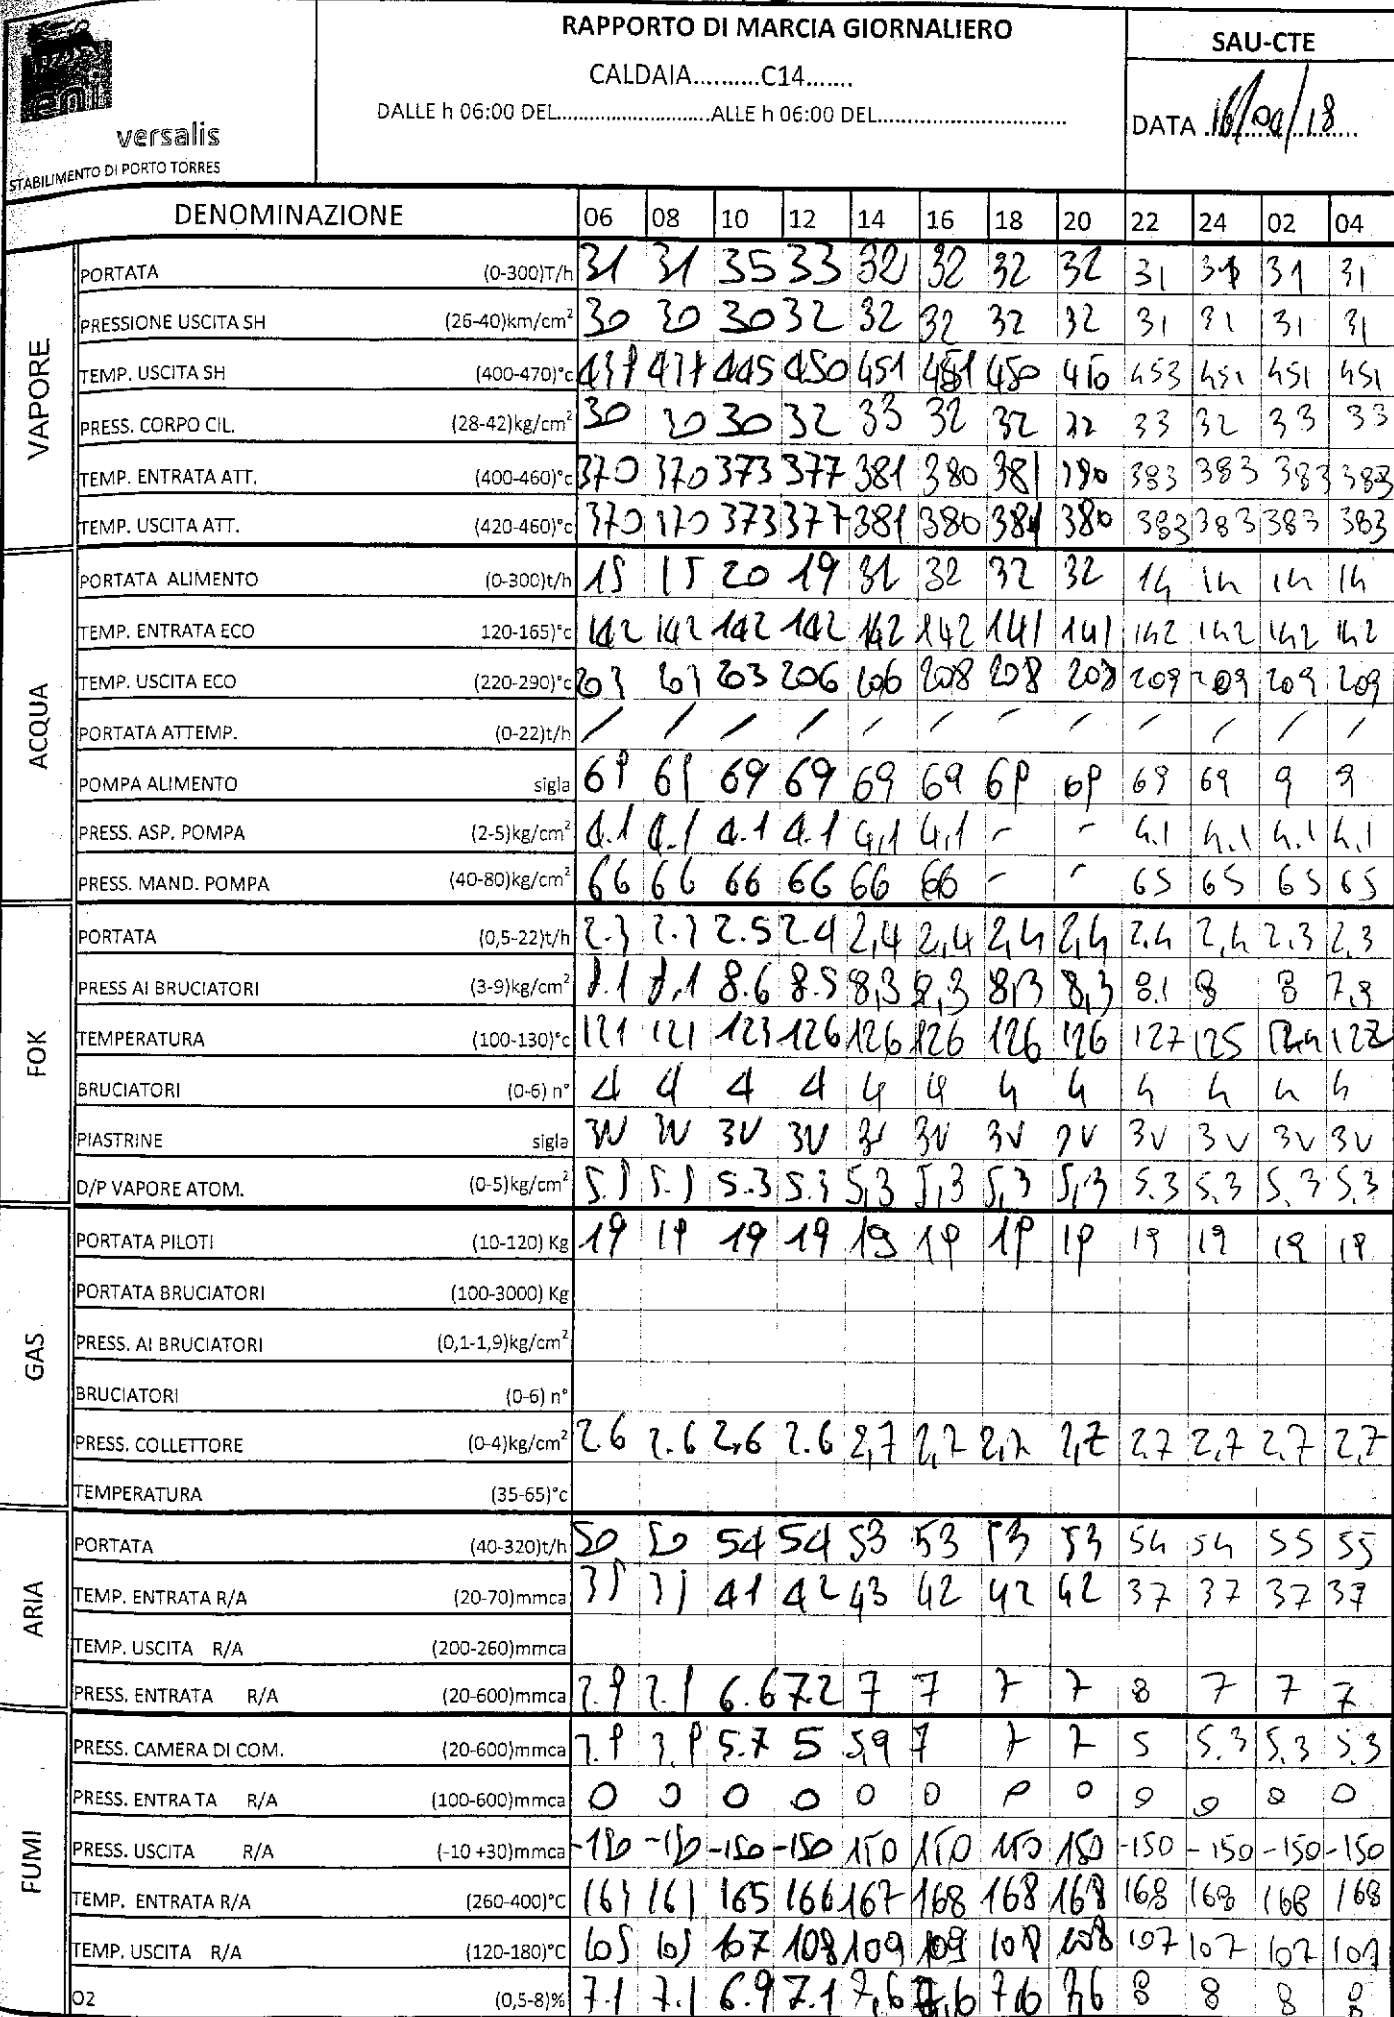 eni
versalis
STABILIMENTO DI PORTO TORRES
RAPPORTO DI MARCIA GIORNALIERO
CALDAIA..........C14.......
DALLE h 06:00 DEL............................ALLE h 06:00 DEL..................................
SAU-CTE
DATA 16/04/18
DENOMINAZIONE 06 08 10 12 14 16 18 20 22 24 02 04
VAPORE
PORTATA (0-300)T/h 31 31 35 33 32 32 32 32 31 31 31 31
PRESSIONE USCITA SH (26-40)km/cm² 30 30 30 32 32 32 32 32 31 31 31 31
TEMP. USCITA SH (400-470)°c 445 450 451 451 450 453 451 451 451
PRESS. CORPO CIL. (28-42)kg/cm² 30 30 30 32 33 32 32 32 33 32 33 33
TEMP. ENTRATA ATT. (400-460)°c 370 370 373 377 381 380 381 380 383 383 383 383
TEMP. USCITA ATT. (420-460)°c 370 370 373 377 381 380 381 380 383 383 383 383
ACQUA
PORTATA ALIMENTO (0-300)t/h 15 15 20 19 32 32 32 14 14 14 14
TEMP. ENTRATA ECO 120-165)°c 142 142 142 142 142 142 141 141 142 142 142 142
TEMP. USCITA ECO (220-290)°c 203 203 203 206 206 208 208 208 209 209 209 209
PORTATA ATTEMP. (0-22)t/h / / / / / / / / / / / /
POMPA ALIMENTO sigla 69 69 69 69 69 69 69 69 69 69 9 9
PRESS. ASP. POMPA (2-5)kg/cm² 4.1 4.1 4.1 4.1 4,1 4,1 - - 4.1 4.1 4.1 4,1
PRESS. MAND. POMPA (40-80)kg/cm² 66 66 66 66 66 66 - - 65 65 65 65
FOK
PORTATA (0,5-22)t/h 2.3 2.3 2.5 2.4 2,4 2,4 2,4 2,4 2.4 2,4 2.3 2,3
PRESS AI BRUCIATORI (3-9)kg/cm² 8.6 8.5 8,3 8,3 8,3 8,3 8.1 8 8 7,9
TEMPERATURA (100-130)°c 121 121 123 126 126 126 126 126 127 125 124 122
BRUCIATORI (0-6) n° 4 4 4 4 4 4 4 4 4 4 4 4
PIASTRINE sigla 3V 3V 3V 3V 3V 3V 3V 3V 3V 3V 3V 3V
D/P VAPORE ATOM. (0-5)kg/cm² 5.3 5.3 5.3 5.3 5,3 5,3 5,3 5,3 5.3 5,3 5,3 5,3
GAS
PORTATA PILOTI (10-120) Kg 19 19 19 19 19 19 19 19 19 19 19 19
PORTATA BRUCIATORI (100-3000) Kg
PRESS. AI BRUCIATORI (0,1-1,9)kg/cm²
BRUCIATORI (0-6) n°
PRESS. COLLETTORE (0-4)kg/cm² 2.6 2.6 2,6 2.6 2,7 2,7 2,7 2,7 2,7 2,7 2,7 2,7
TEMPERATURA (35-65)°c
ARIA
PORTATA (40-320)t/h 50 50 54 54 53 53 53 53 54 54 55 55
TEMP. ENTRATA R/A (20-70)mmca 35 35 41 42 43 42 42 42 37 37 37 37
TEMP. USCITA R/A (200-260)mmca
PRESS. ENTRATA R/A (20-600)mmca 6.6 7.2 7 7 7 7 8 7 7 7
FUMI
PRESS. CAMERA DI COM. (20-600)mmca 5.7 5 5,9 7 7 7 5 5.3 5,3 5,3
PRESS. ENTRATA R/A (100-600)mmca 0 0 0 0 0 0 0 0 0 0 0 0
PRESS. USCITA R/A (-10 +30)mmca -150 -150 -150 -150 150 150 150 150 -150 -150 -150 -150
TEMP. ENTRATA R/A (260-400)°C 163 163 165 166 167 168 168 168 168 168 168 168
TEMP. USCITA R/A (120-180)°C 105 105 107 108 109 109 108 108 107 107 107 107
O2 (0,5-8)% 7.1 7.1 6.9 7.1 7,6 7,6 7,6 7,6 8 8 8 8